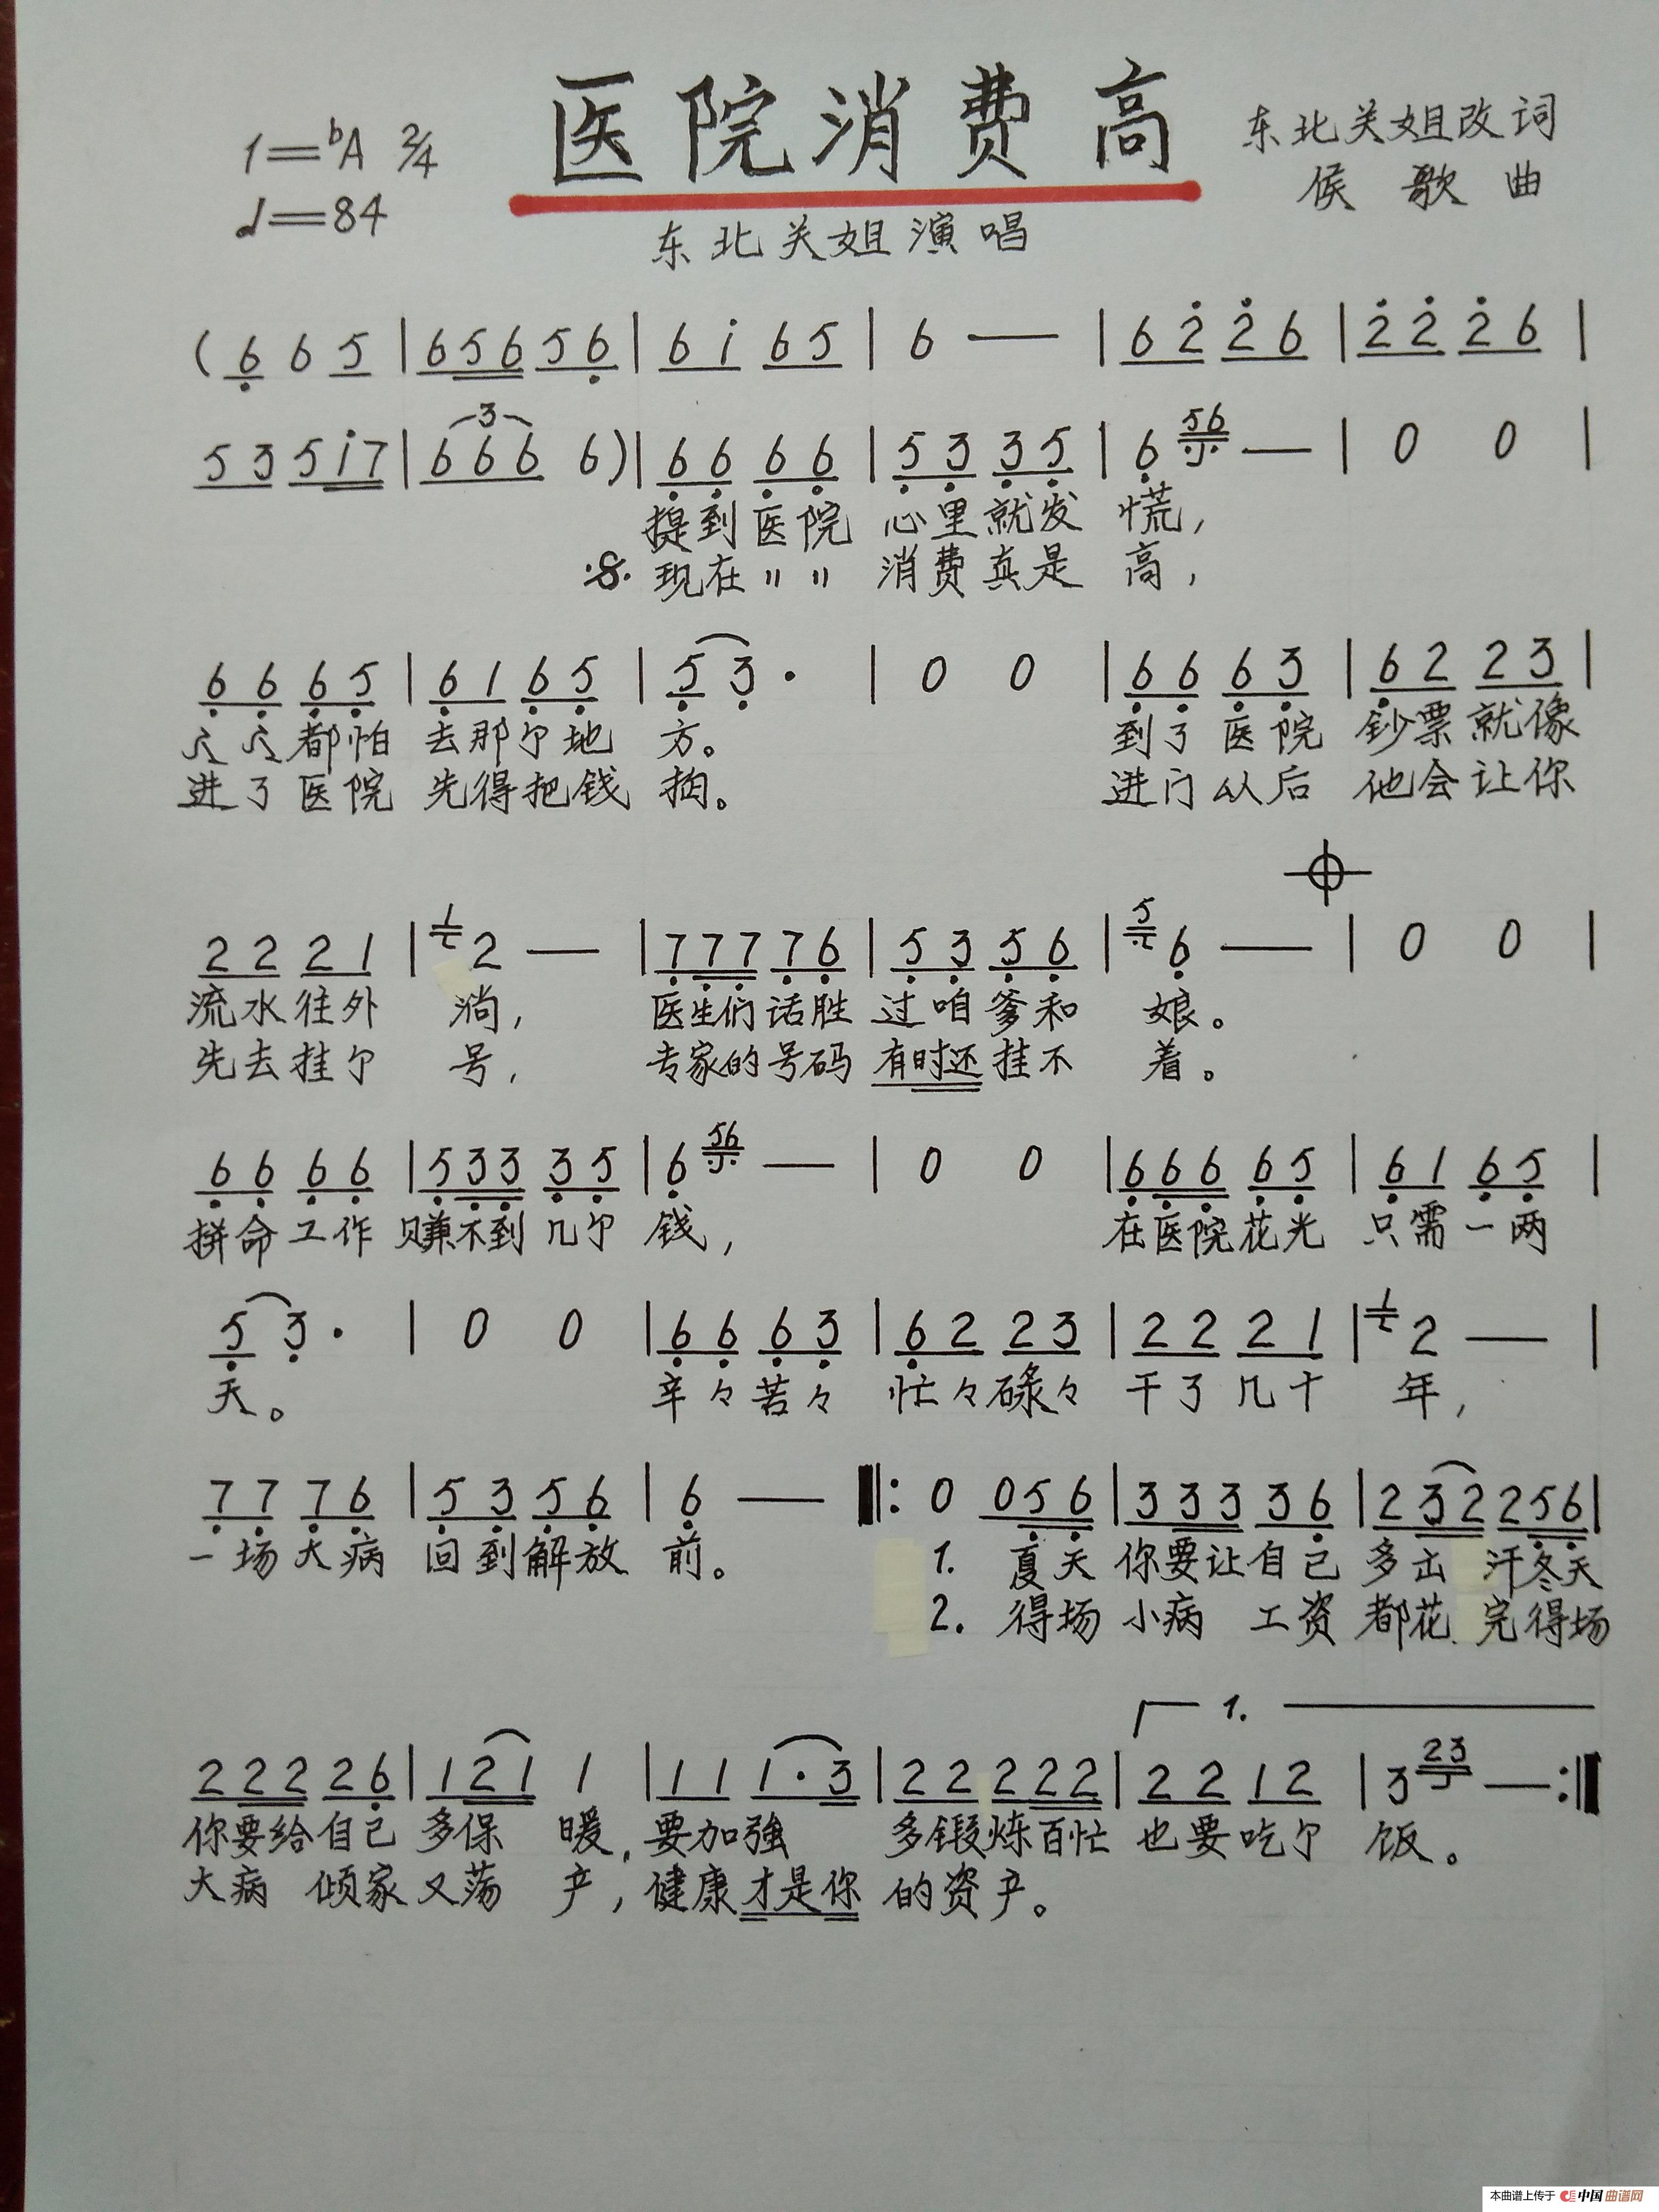 医院消费高
1=bA 2/4
♩=84
东北关姐改词
侯 歌 曲
东北关姐演唱
( 6 6 5 | 6 5 6 5 6 | 6 i 6 5 | 6 — | 6 2 2 6 | 2 2 2 6 |
5 3 5 i 7 | 3 6 6 6 6 ) | 6 6 6 6 | 5 3 3 5 | 6 56 — | 0 0 |
提到医院 心里就发 慌，
现在〃〃 消费真是 高，
6 6 6 5 | 6 1 6 5 | 5 3 · | 0 0 | 6 6 6 3 | 6 2 2 3 |
人人都怕 去那个地 方。 到了医院 钞票就像
进了医院 先得把钱 掏。 进门以后 他会让你
2 2 2 1 | 1 2 — | 7 7 7 7 6 | 5 3 5 6 | 5 6 — | 0 0 |
流水往外 淌， 医生们话胜 过咱爹和 娘。
先去挂个 号， 专家的号码 有时还挂不 着。
6 6 6 6 | 5 3 3 3 5 | 6 56 — | 0 0 | 6 6 6 6 5 | 6 1 6 5 |
拼命工作 赚不到几个 钱， 在医院花光 只需一两
5 3 · | 0 0 | 6 6 6 3 | 6 2 2 3 | 2 2 2 1 | 1 2 — |
天。 辛々苦々 忙々碌々 干了几十 年，
7 7 7 6 | 5 3 5 6 | 6 — ‖: 0 0 5 6 | 3 3 3 3 6 | 2 3 2 2 5 6 |
一场大病 回到解放 前。 1. 夏天 你要让自己 多出 汗冬天
2. 得场 小病 工资 都花 完得场
1.
2 2 2 2 6 | 1 2 1 1 | 1 1 1 · 3 | 2 2 2 2 2 | 2 2 1 2 | 3 23 — :‖
你要给自己 多保 暖，要加強 多锻炼百忙 也要吃个 饭。
大病 倾家又荡 产，健康才是你 的资产。
本曲谱上传于 中国曲谱网